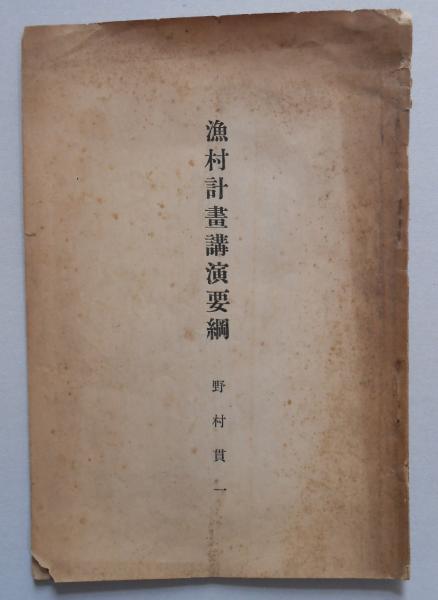 漁村計畫講演要綱
野村貫一